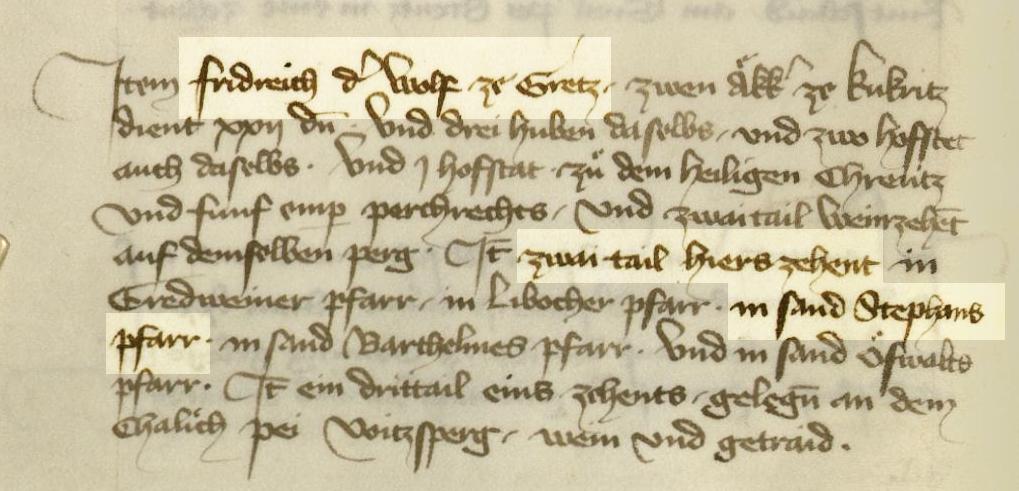 Item fridreich d' Wolf ze Gretz · zwen åkk' ze kukritz
dient xxij dn̄ · Vnd drei huben daselbs · vnd zwo hofstet
auch daselbs · Vnd j hofstat · zů dem heiligen Chreutz
Vnd funf emp̄ perchrechts · Vnd zwaitail Weinzehēt
auf demselben perg · It̄ zwai tail hiers zehent in
Gredweiner pfarr · in Libocher pfarr · in sand Stephans
pfarr · in sand Barthelmes pfarr · Vnd in sand Öswalts
pfarr · It̄ ein drittail eins zehents · gelegn̄ an dem
Chalich pei Voitzsperg · wein vnd getraid ·